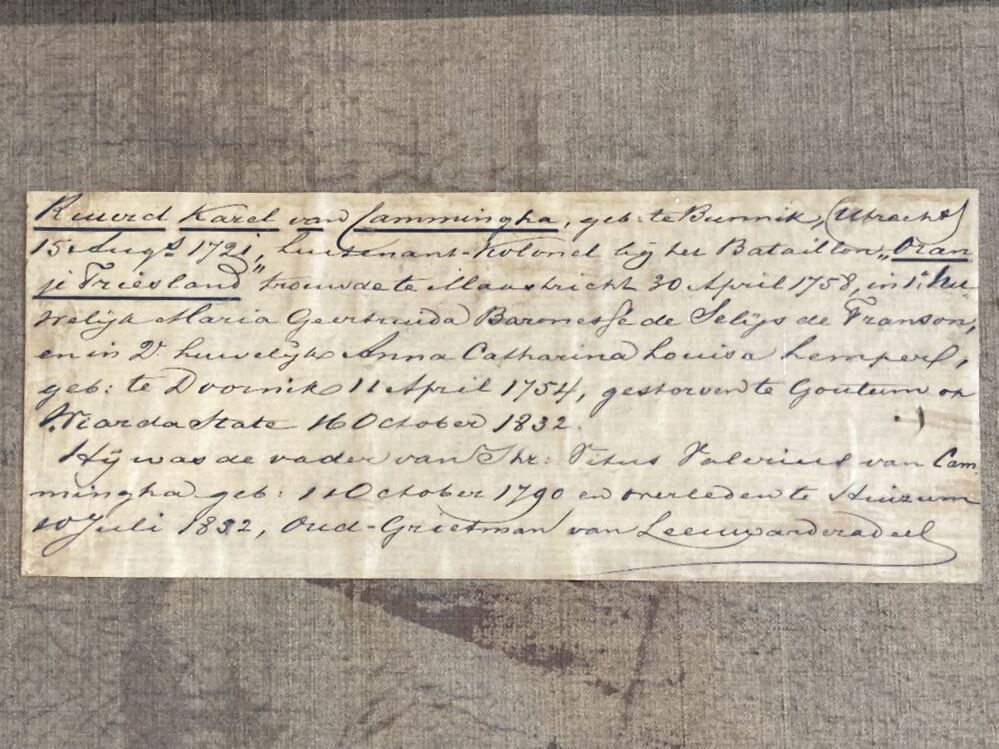 Ruurd Karel van Cammingha, geb: te Bunnik, (Utrecht)
15 Augs 1721, Luitenant-Kolonel bij het Bataillon „Oran
je Friesland" trouwde te Maastricht 30 April 1758, in 1e hu
welijk Maria Geertruida Baronesse de Selijs de Franson,
en in 2e huwelijk Anna Catharina Louisa Lemperl,
geb: te Doornik 11 April 1754, gestorven te Goutum op
Wiarda State 16 October 1832.
Hij was de vader van Jhr: Titus Valerius van Cam
mingha geb: 11 October 1790 en overleden te Huizum
10 Juli 1832, Oud-Grietman van Leeuwarderadeel